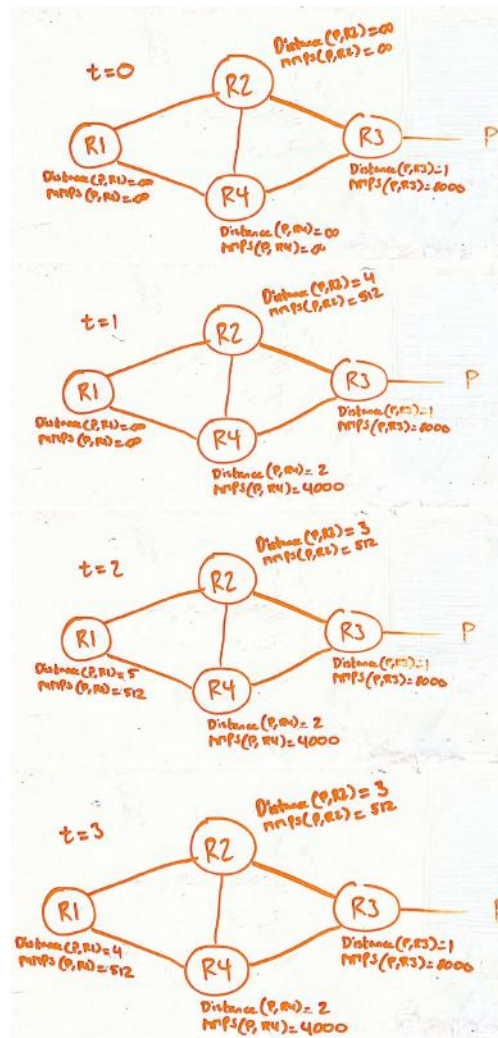 t=0
Distance(P,R2)=∞
mmps(P,R2)=∞
R2
R1
R3
P
Distance(P,R1)=∞
mmps(P,R1)=∞
Distance(P,R3)=1
MMPS(P,R3)=8000
R4
Distance(P,R4)=∞
MMPS(P,R4)=∞
t=1
Distance(P,R2)=4
mmps(P,R2)=512
R2
R1
R3
P
Distance(P,R1)=∞
mmps(P,R1)=∞
Distance(P,R3)=1
MMPS(P,R3)=8000
R4
Distance(P,R4)=2
MMPS(P,R4)=4000
t=2
Distance(P,R2)=3
mmps(P,R2)=512
R2
R1
R3
P
Distance(P,R1)=5
mmps(P,R1)=512
Distance(P,R3)=1
MMPS(P,R3)=8000
R4
Distance(P,R4)=2
MMPS(P,R4)=4000
t=3
Distance(P,R2)=3
mmps(P,R2)=512
R2
R1
R3
Distance(P,R1)=4
MMPS(P,R1)=512
Distance(P,R3)=1
MMPS(P,R3)=8000
R4
Distance(P,R4)=2
MMPS(P,R4)=4000